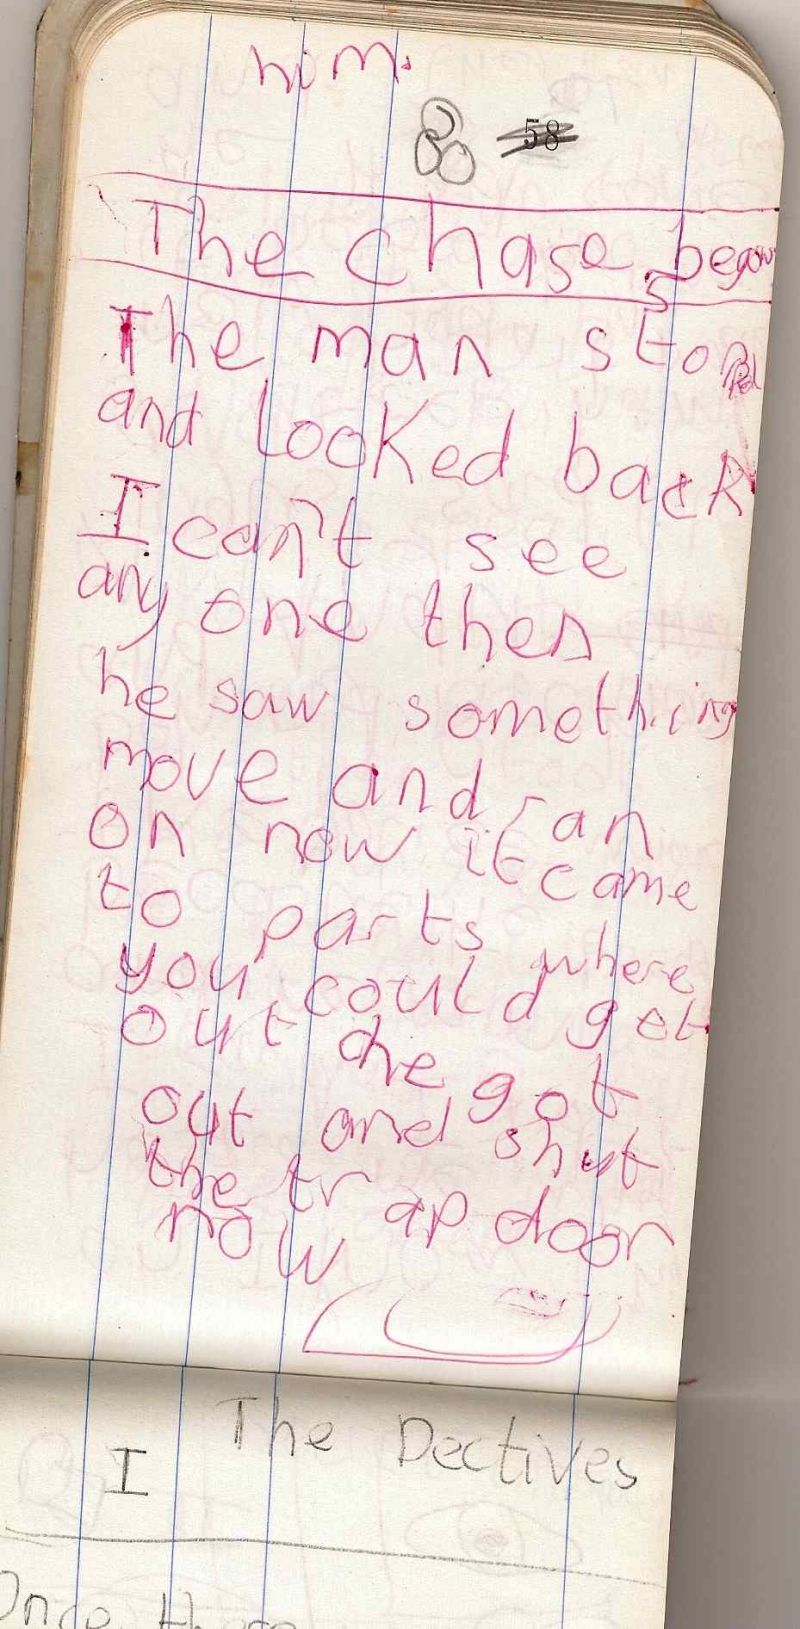 him.
80 58
The chase begans
The man stopped
and looked back
I can't see
any one then
he saw something
move and ran
on now it came
to parts where
you could get
out he got
out and shut
the trap door
now
The Dectives
I
Once there